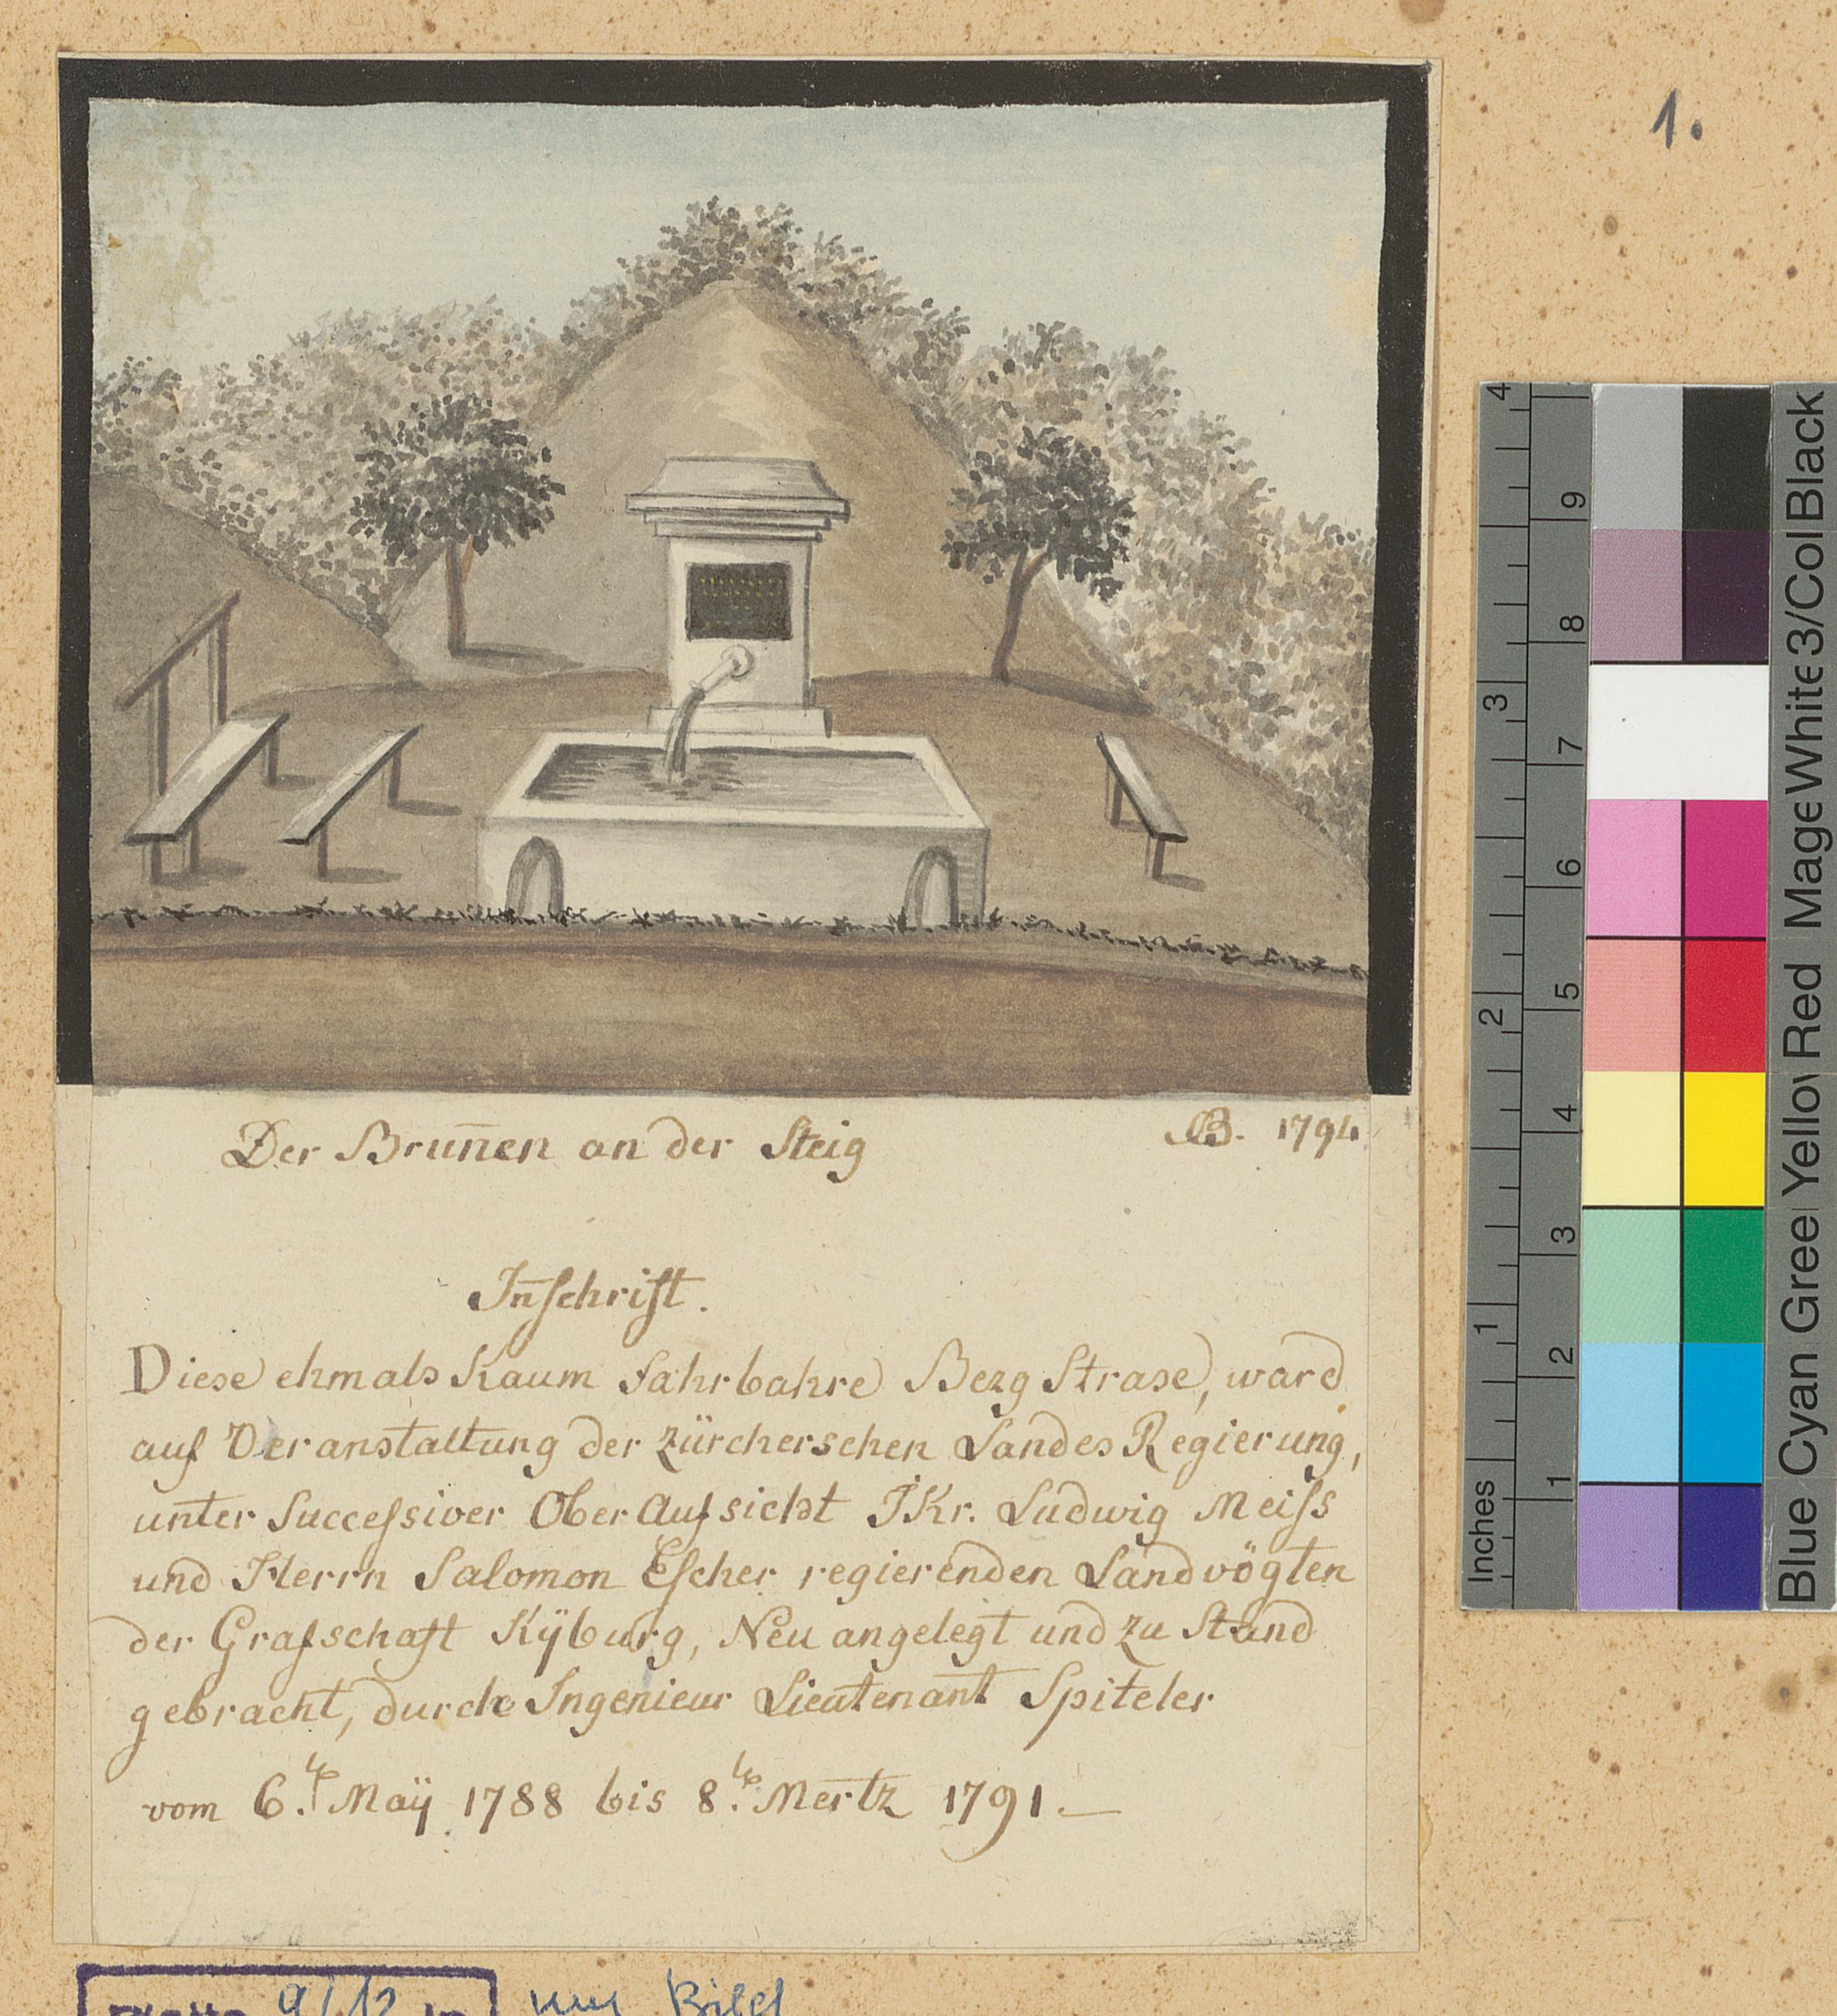 1.
Der Brun̄en an der Steig
B. 1794
In̄schrift.
Diese ehmals Kaum fahrbahre Berg Strase, ward
auf Veranstaltung der zürcherschen Landes Regierung,
unter Succeſsiver Ober Aufsicht JKr. Ludwig Meiſs
und Herrn Salomon Eſcher regierenden Landvögten
der Grafschaft Kÿburg, Neu angelegt und zu Stand
gebracht, durch Ingenieur Lieutenant Spiteler
vom 6.te Maÿ 1788 bis 8.te Mertz 1791.—
9/12
nur Bild
Inches
1
2
3
4
1
2
3
4
5
6
7
8
9
Blue Cyan Gree Yellow Red Mage White 3/Col Black